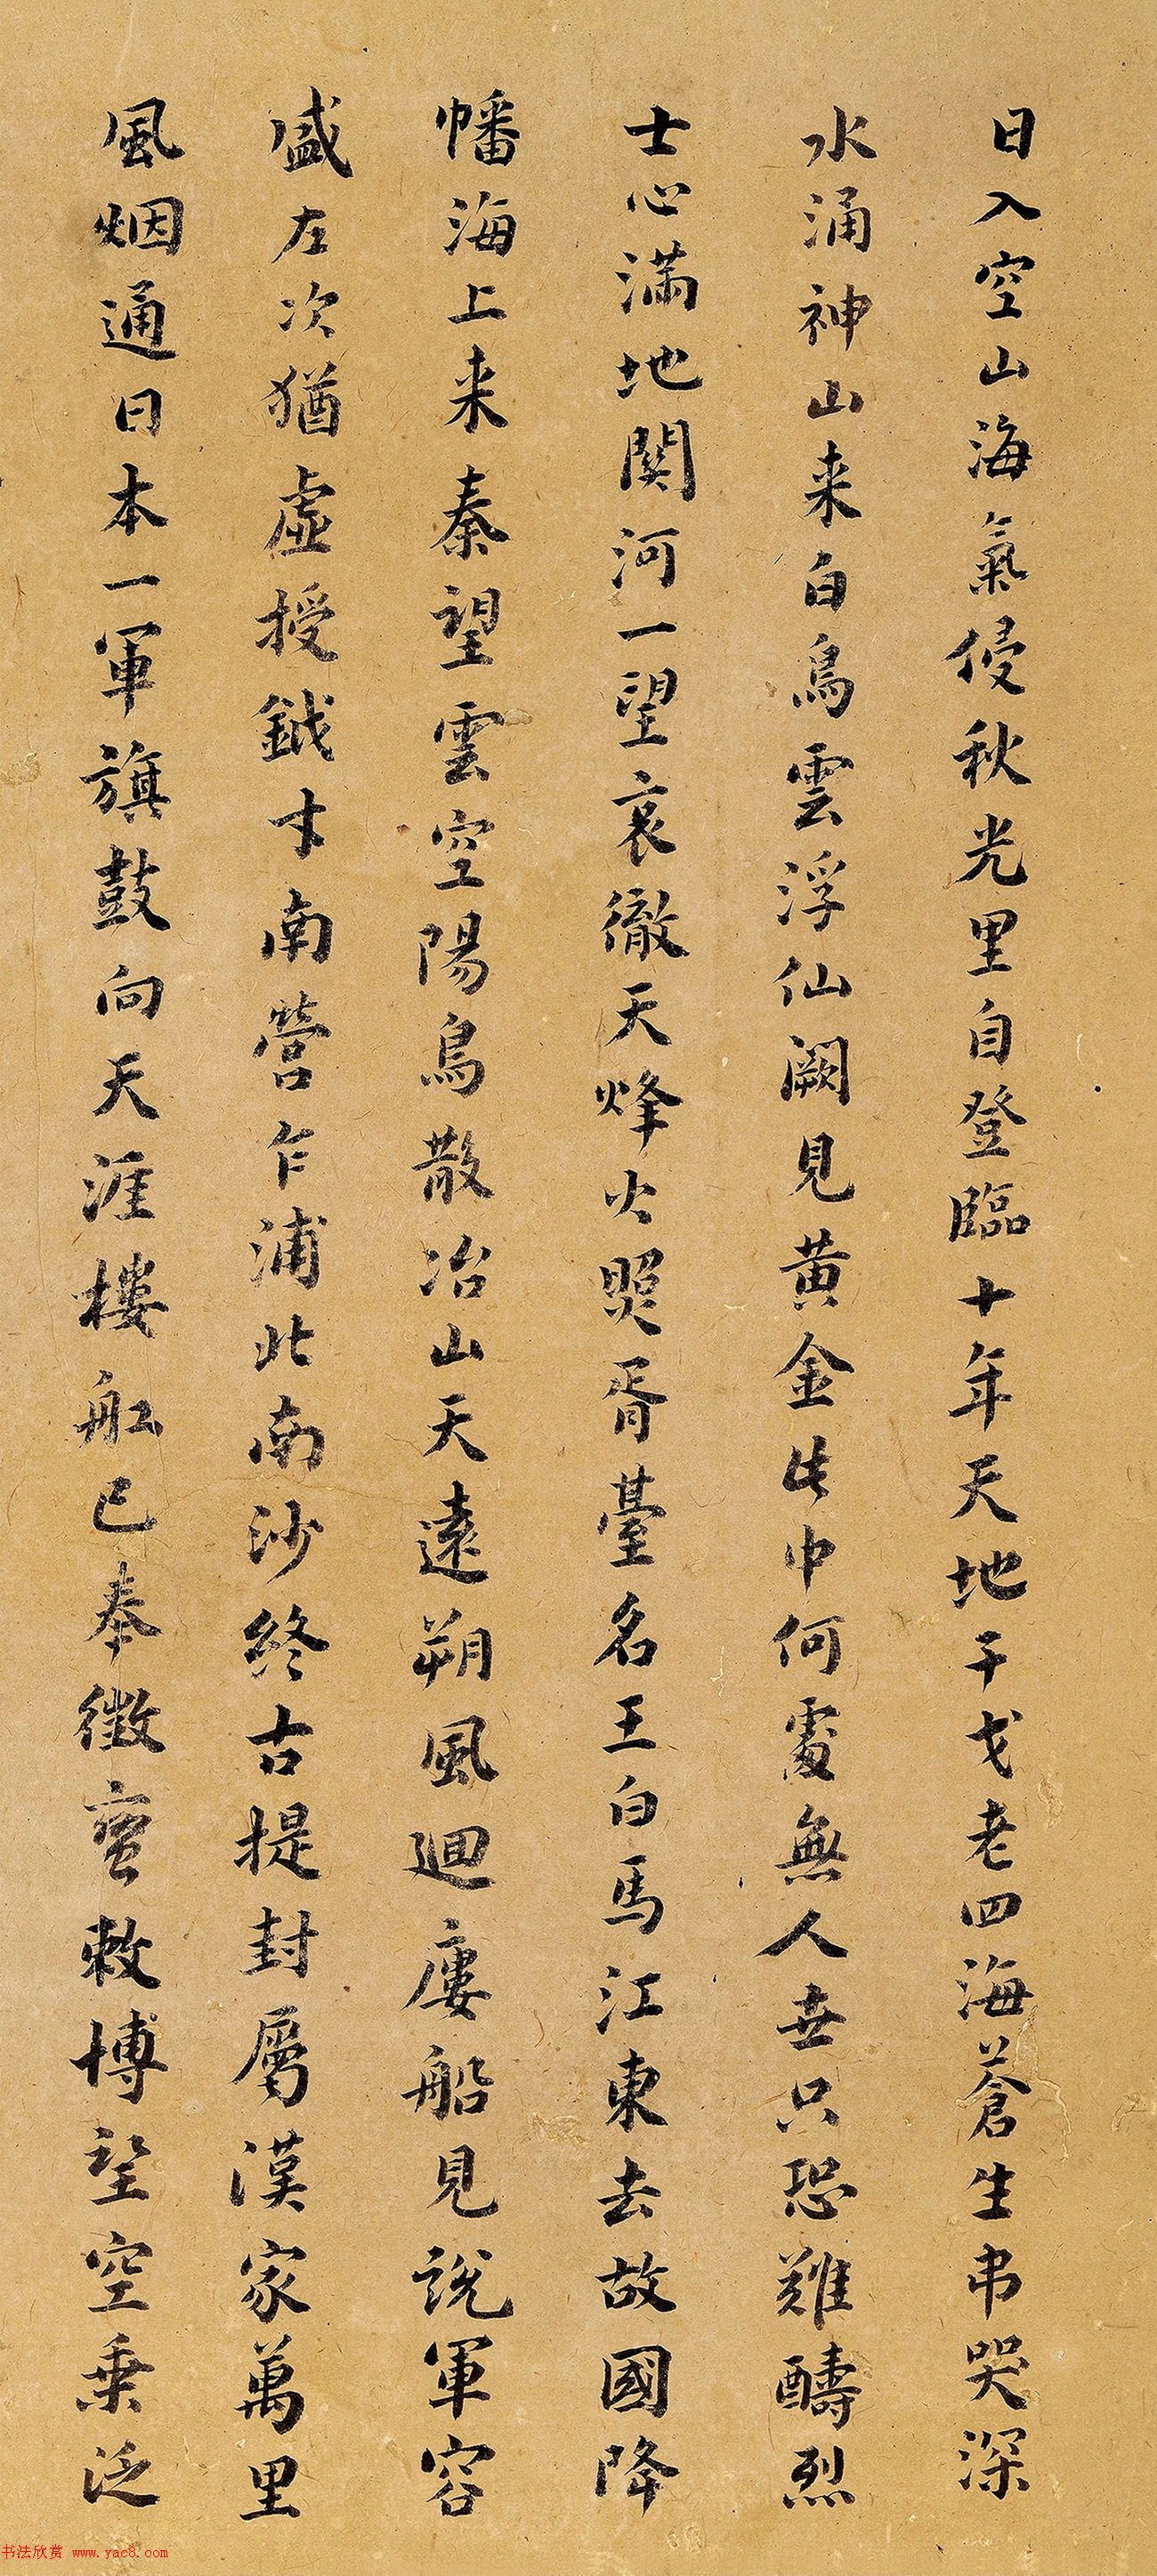 日入空山海氣侵秋光里自登臨十年天地干戈老四海蒼生弔哭深
水涌神山来白鳥雲浮仙闕見黄金此中何處無人世只恐難酬烈
士心滿地關河一望哀徹天烽火照胥臺名王白馬江東去故國降
幡海上来秦望雲空陽鳥散冶山天遠朔風迴樓船見說軍容
盛左次猶虛授鉞才南營乍浦北南沙終古提封屬漢家萬里
風烟通日本一軍旗鼓向天涯樓船已奉徵蠻敕博望空乘泛
书法欣赏 www.yac8.com